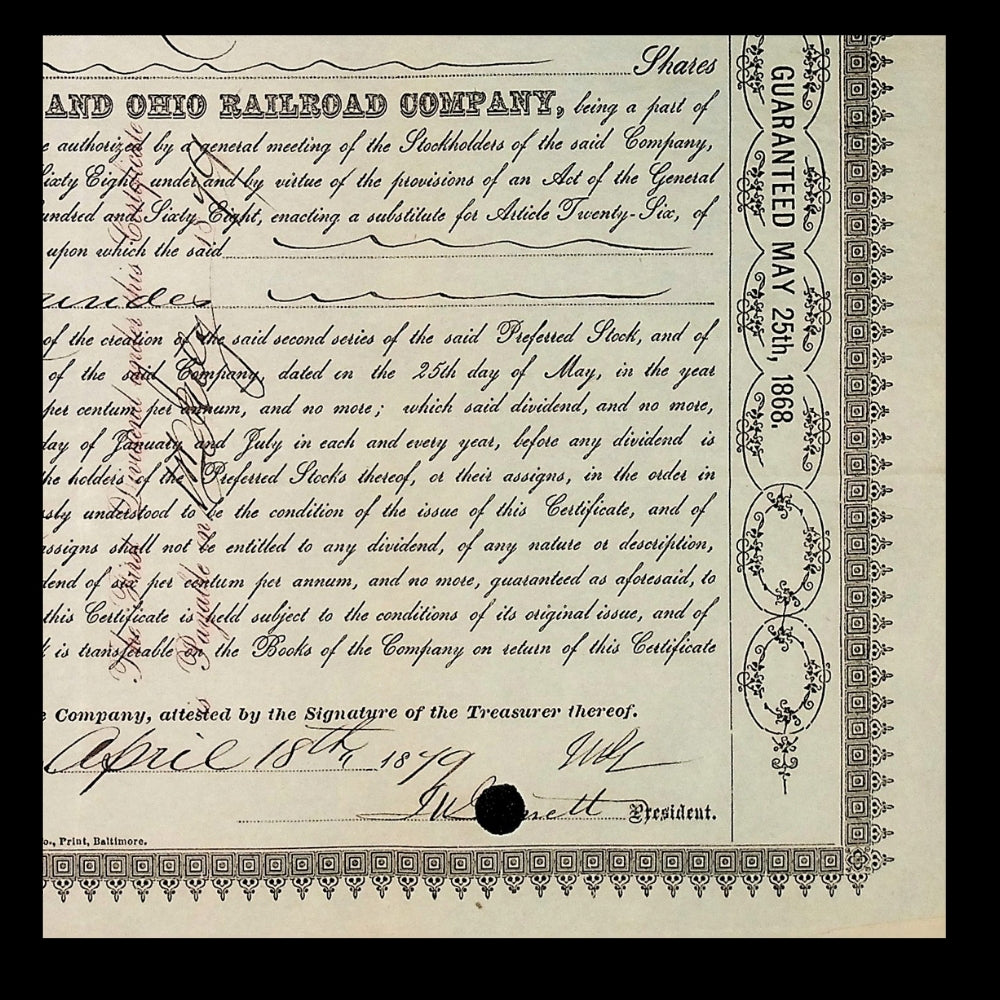 Shares
AND OHIO RAILROAD COMPANY, being a part of
e authorized by a general meeting of the Stockholders of the said Company,
Sixty Eight, under and by virtue of the provisions of an Act of the General
undred and Sixty Eight, enacting a substitute for Article Twenty-Six, of
upon which the said
of the creation of the said second series of the said Preferred Stock, and of
of the said Company, dated on the 25th day of May, in the year
per centum per annum, and no more; which said dividend, and no more,
day of January and July in each and every year, before any dividend is
he holders of the Preferred Stocks thereof, or their assigns, in the order in
sly understood to be the condition of the issue of this Certificate, and of
assigns shall not be entitled to any dividend, of any nature or description,
dend of six per centum per annum, and no more, guaranteed as aforesaid, to
this Certificate is held subject to the conditions of its original issue, and of
k is transferable on the Books of the Company on return of this Certificate
e Company, attested by the Signature of the Treasurer thereof.
April 18th, 1879
President.
o., Print, Baltimore.
GUARANTEED MAY 25th, 1868.
The First Dividend under this Certificate
is Payable in 1879